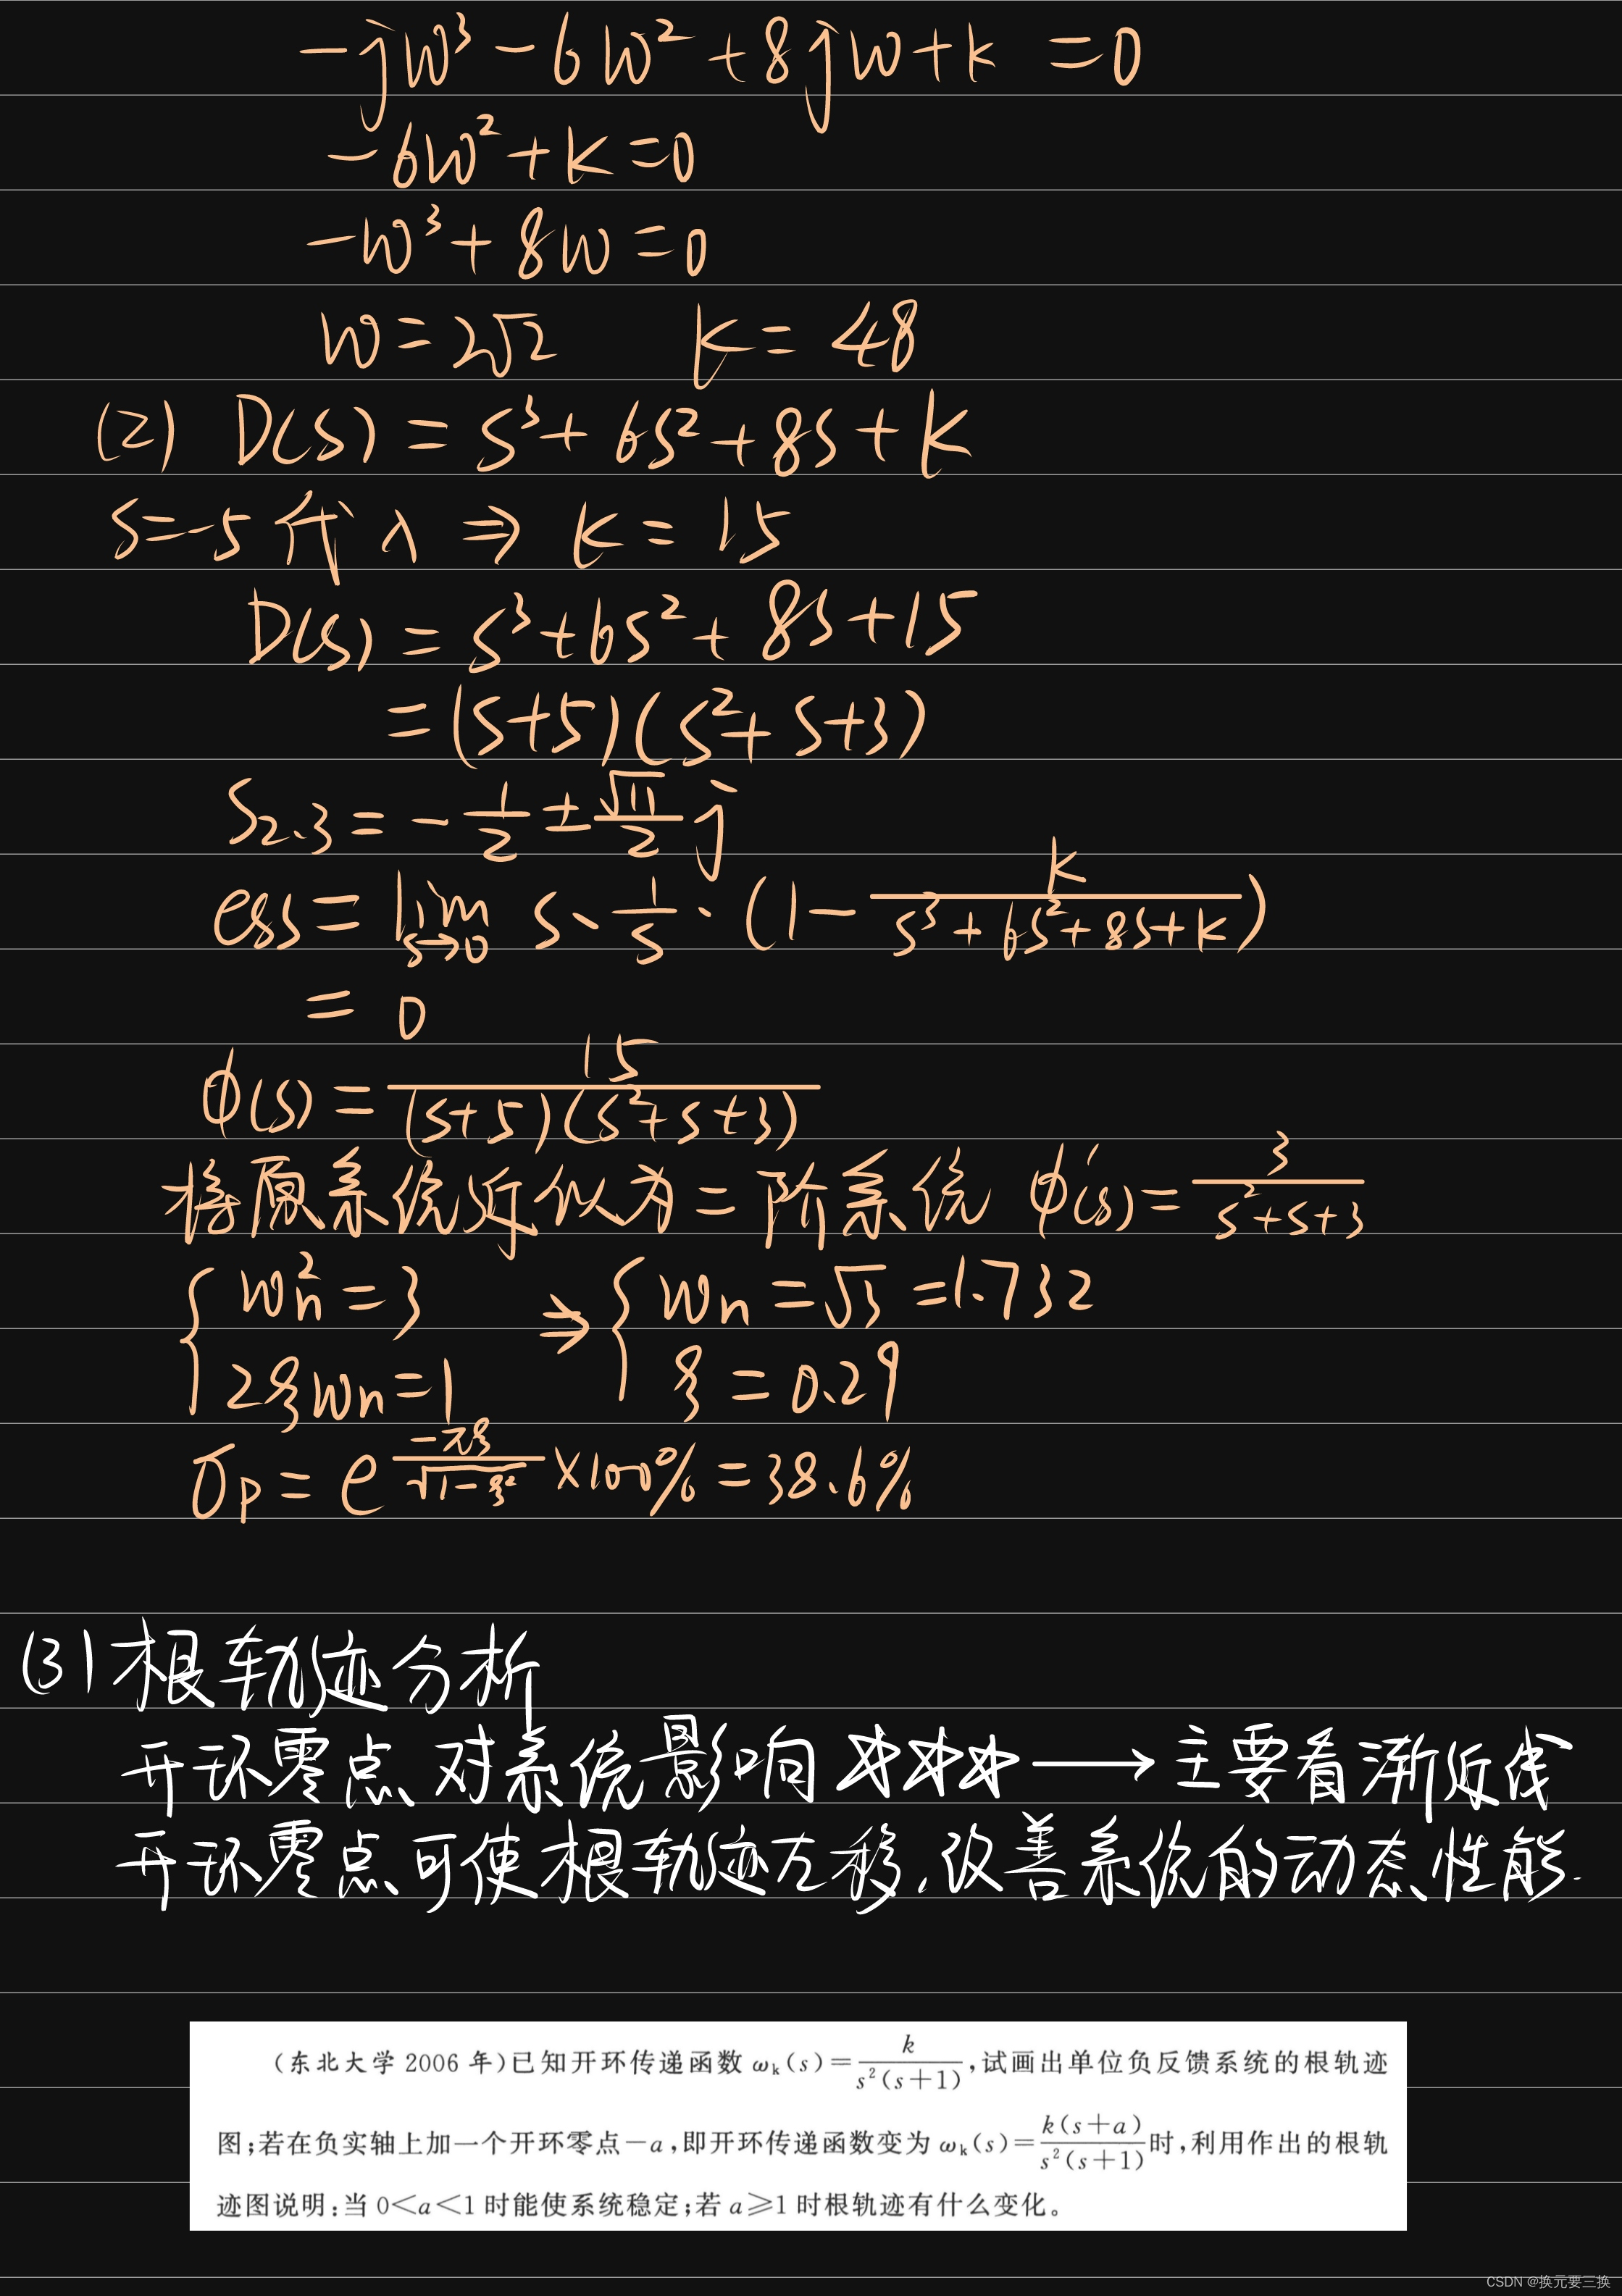 -jw³-6w²+8jw+k=0
-6w²+k=0
-w³+8w=0
w=2√2 k=48
(2) D(s)=s³+6s²+8s+k
s=-5代入⇒k=15
D(s)=s³+6s²+8s+15
=(s+5)(s²+s+3)
S₂.₃=-1/2±√11/2 j
ess=lim s→0 s·1/s·(1-k/(s³+6s²+8s+k))
=0
φ(s)=15/((s+5)(s²+s+3))
将原系统近似为二阶系统 φ'(s)=3/(s²+s+3)
{wn²=3 ⇒ {wn=√3=1.732
2ξwn=1 ξ=0.29
σp=e^(-πξ/√(1-ξ²))×100%=38.6%
(3)根轨迹分析
开环零点对系统影响☆☆☆⟶主要看渐近线
开环零点可使根轨迹左移,改善系统的动态性能.
(东北大学 2006 年)已知开环传递函数 ωₖ(s)=k/(s²(s+1)),试画出单位负反馈系统的根轨迹
图;若在负实轴上加一个开环零点-a,即开环传递函数变为 ωₖ(s)=k(s+a)/(s²(s+1))时,利用作出的根轨
迹图说明:当 0<a<1 时能使系统稳定;若 a≥1 时根轨迹有什么变化。
CSDN @换元要三换